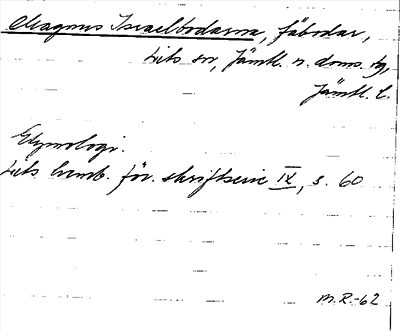 Magnus Israelbodarna, fäbodar,
Lits sn, Jämtl. n. doms. tg,
Jämtl. l.
Etymologi.
Lits hemb. för. skriftserie IX, s. 60
M.R.-62